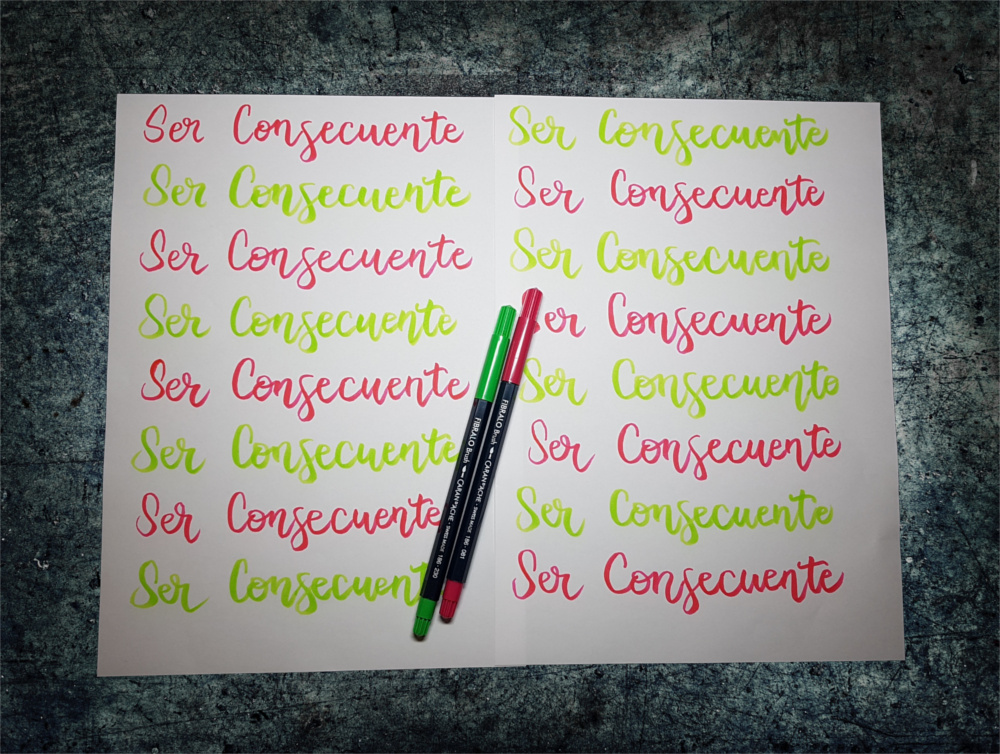 Ser Consecuente
Ser Consecuente
Ser Consecuente
Ser Consecuente
Ser Consecuente
Ser Consecuente
Ser Consecuente
Ser Consecuent
Ser Consecuente
Ser Consecuente
Ser Consecuente
Ser Consecuente
Ser Consecuento
Ser Consecuente
Ser Consecuente
Ser Consecuente
FIBRALO Brush CARAN d'ACHE SWISS MADE 186.230
FIBRALO Brush CARAN d'ACHE SWISS MADE 186.081